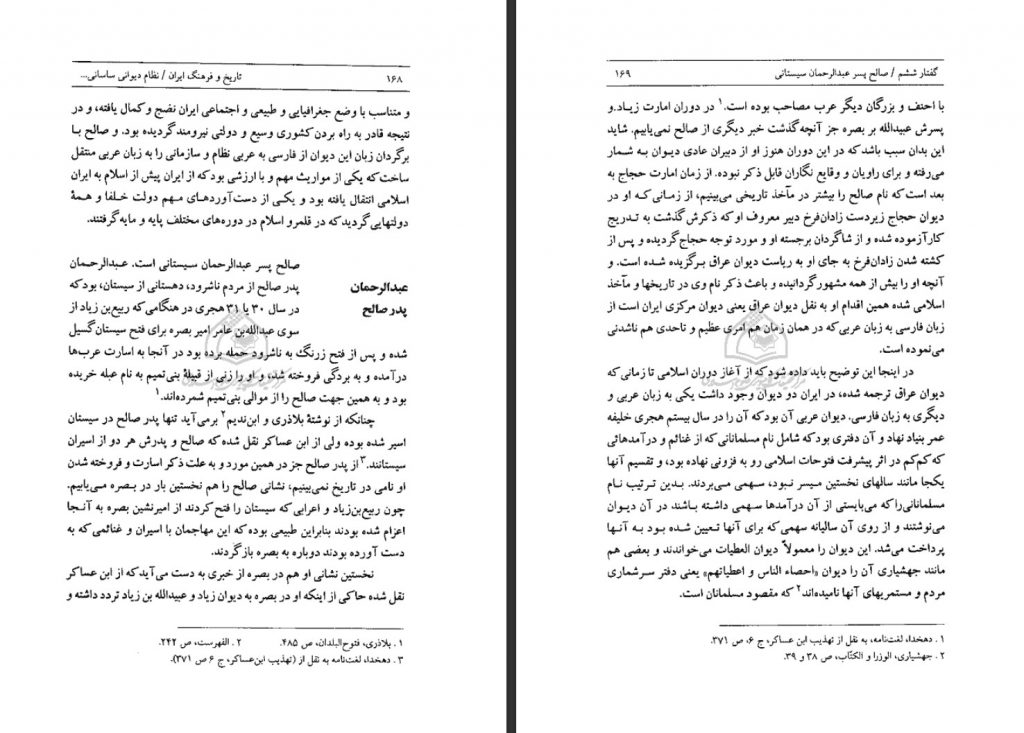 ۱۶۸ تاریخ و فرهنگ ایران / نظام دیوانی ساسانی...
و متناسب با وضع جغرافیایی و طبیعی و اجتماعی ایران نضج و کمال یافته، و در
نتیجه قادر به راه بردن کشوری وسیع و دولتی نیرومند گردیده بود. و صالح با
برگردان زبان این دیوان از فارسی به عربی نظام و سازمانی را به زبان عربی منتقل
ساخت که یکی از مواریث مهم و با ارزشی بود که از ایران پیش از اسلام به ایران
اسلامی انتقال یافته بود و یکی از دست‌آوردهای مهم دولت خلفا و همهٔ
دولتهایی گردید که در قلمرو اسلام در دوره‌های مختلف پایه و مایه گرفتند.
عبدالرحمان
پدر صالح
صالح پسر عبدالرحمان سیستانی است. عبدالرحمان
پدر صالح از مردم ناشرود، دهستانی از سیستان، بود که
در سال ۳۰ یا ۳۱ هجری در هنگامی که ربیع‌بن زیاد از
سوی عبدالله‌بن عامر امیر بصره برای فتح سیستان گسیل
شده و پس از فتح زرنگ به ناشرود حمله برده بود در آنجا به اسارت عرب‌ها
درآمده و به بردگی فروخته شد، و او را زنی از قبیلهٔ بنی‌تمیم به نام عبله خریده
بود و به همین جهت صالح را از موالی بنی‌تمیم شمرده‌اند.۱
چنانکه از نوشتهٔ بلاذری و ابن‌ندیم۲ برمی‌آید تنها پدر صالح در سیستان
اسیر شده بوده ولی از ابن عساکر نقل شده که صالح و پدرش هر دو از اسیران
سیستانند.۳ از پدر صالح جز در همین مورد و به علت ذکر اسارت و فروخته شدن
او نامی در تاریخ نمی‌بینیم، نشانی صالح را هم نخستین بار در بصره می‌یابیم.
چون ربیع‌بن‌زیاد و اعرابی که سیستان را فتح کردند از امیرنشین بصره به آنجا
اعزام شده بودند بنابراین طبیعی بوده که این مهاجمان با اسیران و غنائمی که به
دست آورده بودند دوباره به بصره بازگردند.
نخستین نشانی او هم در بصره از خبری به دست می‌آید که از ابن عساکر
نقل شده حاکی از اینکه او در بصره به دیوان زیاد و عبیدالله بن زیاد تردد داشته و
۱ . بلاذری، فتوح‌البلدان، ص ۴۸۵. ۲ . الفهرست، ص ۲۴۲.
۳ . دهخدا، لغت‌نامه به نقل از (تهذیب ابن‌عساکر، ج ۶ ص ۳۷۱).
گفتار ششم / صالح پسر عبدالرحمان سیستانی ۱۶۹
با احنف و بزرگان دیگر عرب مصاحب بوده است.۱ در دوران امارت زیاد و
پسرش عبیدالله بر بصره جز آنچه گذشت خبر دیگری از صالح نمی‌یابیم. شاید
این بدان سبب باشد که در این دوران هنوز او از دبیران عادی دیوان به شمار
می‌رفته و برای راویان و وقایع نگاران قابل ذکر نبوده. از زمان امارت حجاج به
بعد است که نام صالح را بیشتر در مآخذ تاریخی می‌بینیم، از زمانی که او در
دیوان حجاج زیردست زادان‌فرخ دبیر معروف او که ذکرش گذشت به تدریج
کارآزموده شده و از شاگردان برجسته او و مورد توجه حجاج گردیده و پس از
کشته شدن زادان‌فرخ به جای او به ریاست دیوان عراق برگزیده شده است. و
آنچه او را بیش از همه مشهور گردانیده و باعث ذکر نام وی در تاریخها و مآخذ
اسلامی شده همین اقدام او به نقل دیوان عراق یعنی دیوان مرکزی ایران است از
زبان فارسی به زبان عربی که در همان زمان هم امری عظیم و تاحدی هم ناشدنی
می‌نموده است.
در اینجا این توضیح باید داده شود که از آغاز دوران اسلامی تا زمانی که
دیوان عراق ترجمه شده، در ایران دو دیوان وجود داشت یکی به زبان عربی و
دیگری به زبان فارسی. دیوان عربی آن بود که آن را در سال بیستم هجری خلیفه
عمر بنیاد نهاد و آن دفتری بود که شامل نام مسلمانانی که از غنائم و درآمدهائی
که کم‌کم در اثر پیشرفت فتوحات اسلامی رو به فزونی نهاده بود، و تقسیم آنها
یکجا مانند سالهای نخستین میسر نبود، سهمی می‌بردند. بدین ترتیب نام
مسلمانانی را که می‌بایستی از آن درآمدها سهمی داشته باشند در آن دیوان
می‌نوشتند و از روی آن سالیانه سهمی که برای آنها تعیین شده بود به آنها
پرداخت می‌شد. این دیوان را معمولاً دیوان العطیات می‌خواندند و بعضی هم
مانند جهشیاری آن را دیوان «احصاء الناس و اعطیاتهم» یعنی دفتر سرشماری
مردم و مستمریهای آنها نامیده‌اند۲ که مقصود مسلمانان است.
۱ . دهخدا، لغت‌نامه، به نقل از تهذیب ابن عساکر، ج ۶، ص ۳۷۱.
۲ . جهشیاری، الوزرا و الکتّاب، ص ۳۸ و ۳۹.